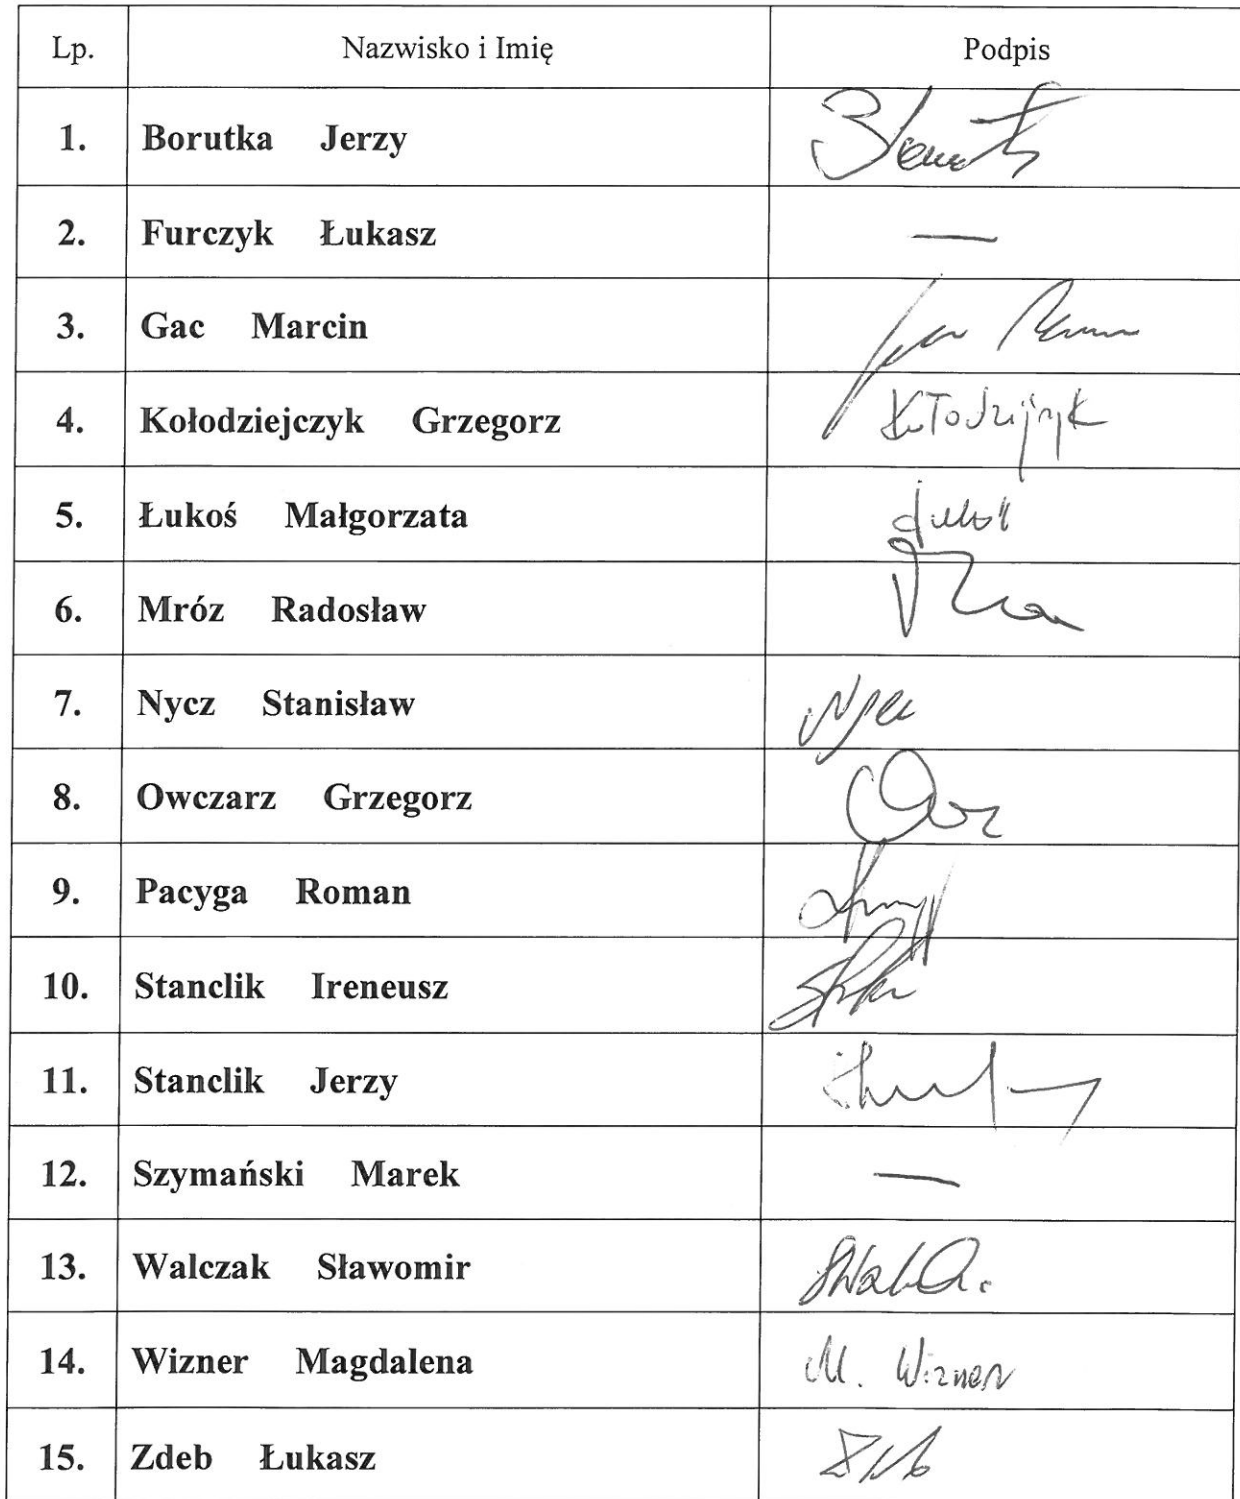 Lp. Nazwisko i Imię Podpis
1. Borutka Jerzy
2. Furczyk Łukasz —
3. Gac Marcin
4. Kołodziejczyk Grzegorz
5. Łukoś Małgorzata
6. Mróz Radosław
7. Nycz Stanisław
8. Owczarz Grzegorz
9. Pacyga Roman
10. Stanclik Ireneusz
11. Stanclik Jerzy
12. Szymański Marek —
13. Walczak Sławomir
14. Wizner Magdalena M. Wizner
15. Zdeb Łukasz